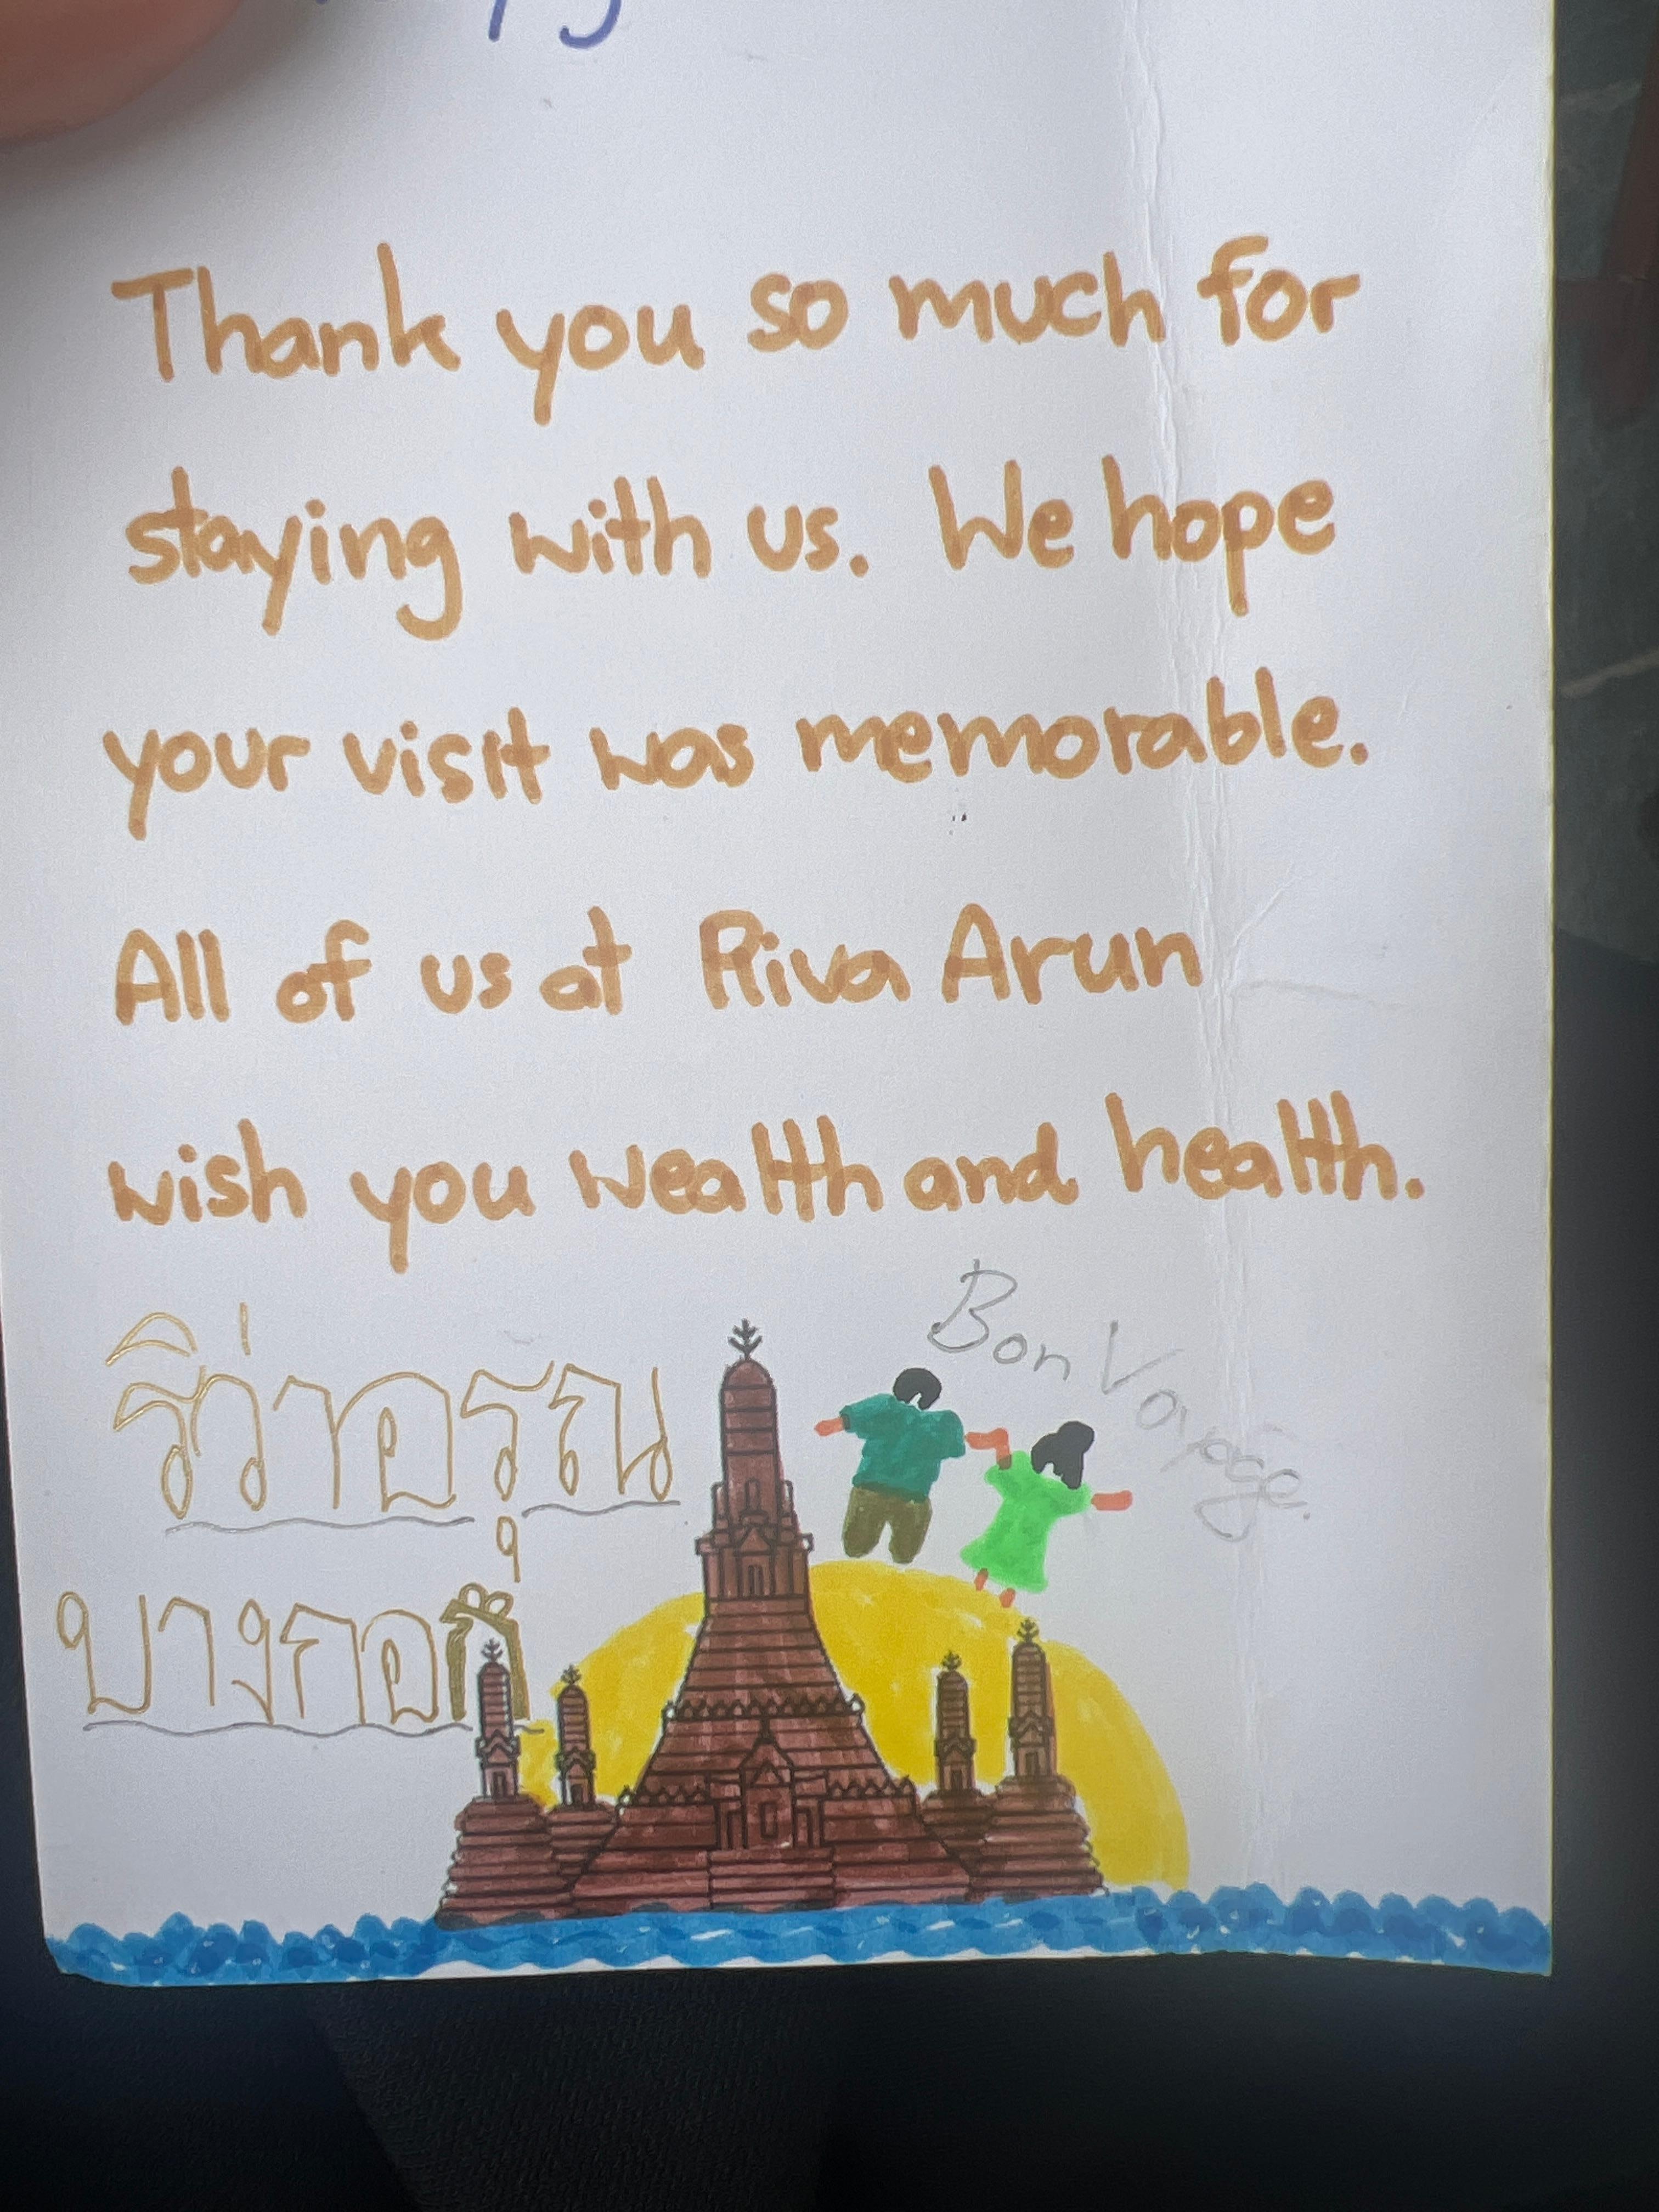 Thank you so much for
staying with us. We hope
your visit was memorable.
All of us at Riva Arun
wish you wealth and health.
Bon Voyage.
ริว่าอรุณ
บางกอก